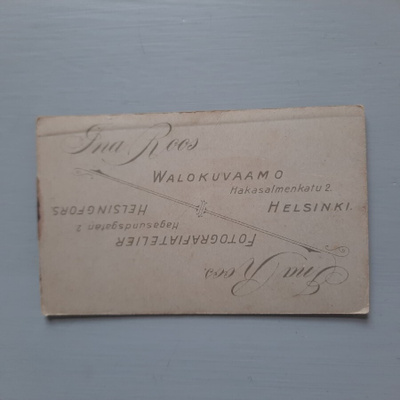 Ina Roos
WALOKUVAAMO
Hakasalmenkatu 2.
HELSINKI.
Ina Roos.
FOTOGRAFIATELIER
Hagasundsgatan 2
HELSINGFORS.